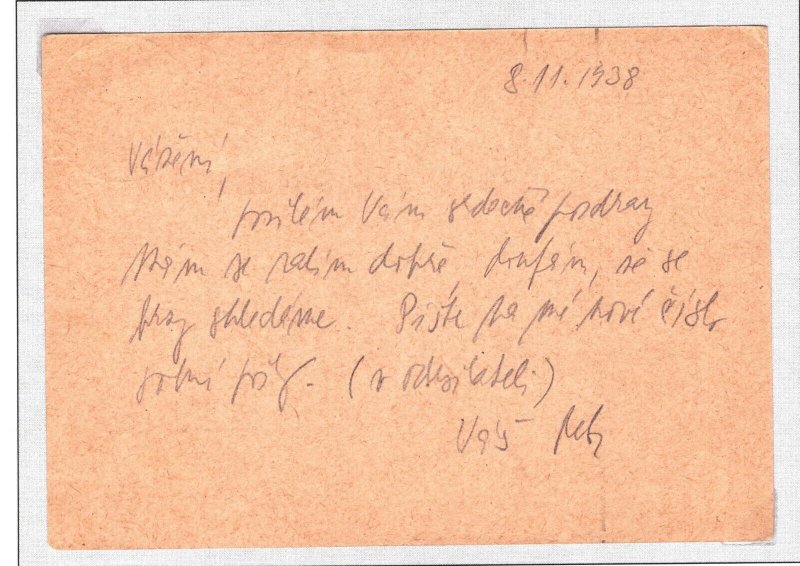 8.11.1938
Vážení,
posílám Vám srdečné pozdravy
Mám se zatím dobře, doufám, že se
brzy shledáme. Pište na mé nové číslo
polní pošty. (v odesilateli)
Váš